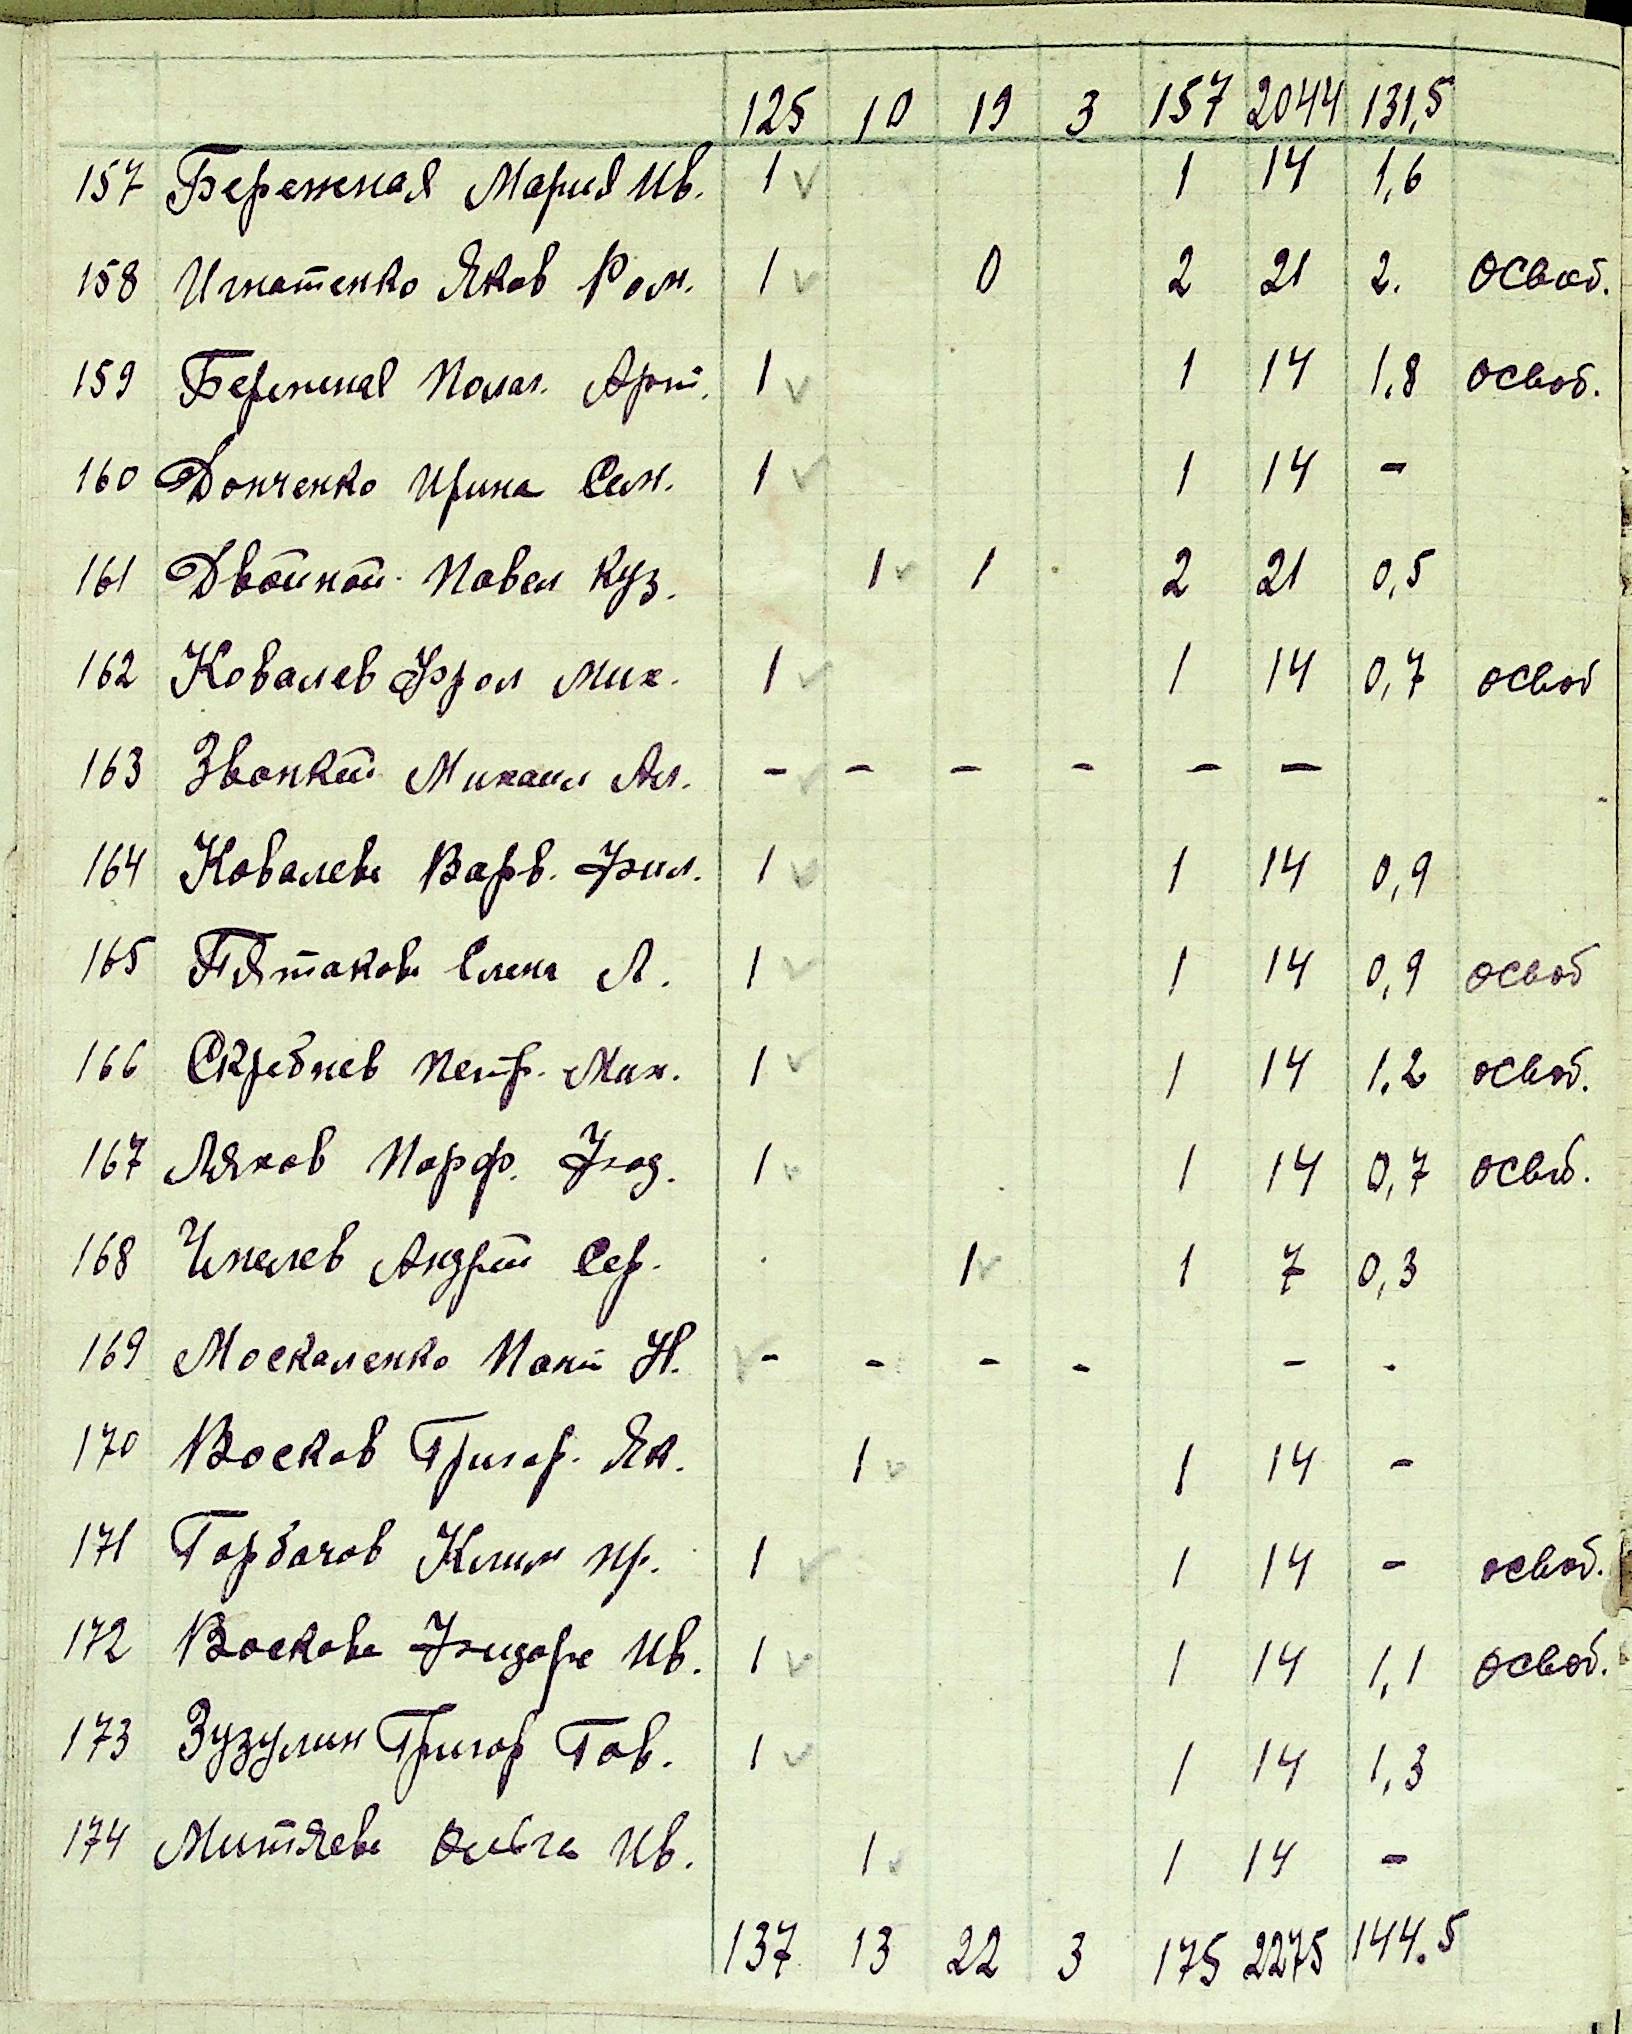 125 10 19 3 157 2044 131,5
157 Бережная Мария Ив. 1 1 14 1,6
158 Игнатенко Яков Ром. 1 0 2 21 2. освоб.
159 Бережная Полаг. Арт. 1 1 14 1,8 освоб.
160 Донченко Ирина Сем. 1 1 14 -
161 Двойной Павел Куз. 1 1 2 21 0,5
162 Ковалев Фрол Мих. 1 1 14 0,7 освоб
163 Звонкий Михаил Ал. - - - - - -
164 Ковалева Варв. Фил. 1 1 14 0,9
165 Пятакова Елена Л. 1 1 14 0,9 освоб
166 Скребнев Петр. Мих. 1 1 14 1,2 освоб.
167 Ляхов Порф. 1 1 14 0,7 освоб.
168 Андрей Сер. 1 1 7 0,3
169 Москаленко Пант Н. - - - - - -
170 Восков Григор. Як. 1 1 14 -
171 Горбачов Клим Пр. 1 1 14 - освоб.
172 Воскова Ив. 1 1 14 1,1 освоб.
173 Зузулин Григор Гав. 1 1 14 1,3
174 Митяева Ольга Ив. 1 1 14 -
137 13 22 3 175 2275 144.5